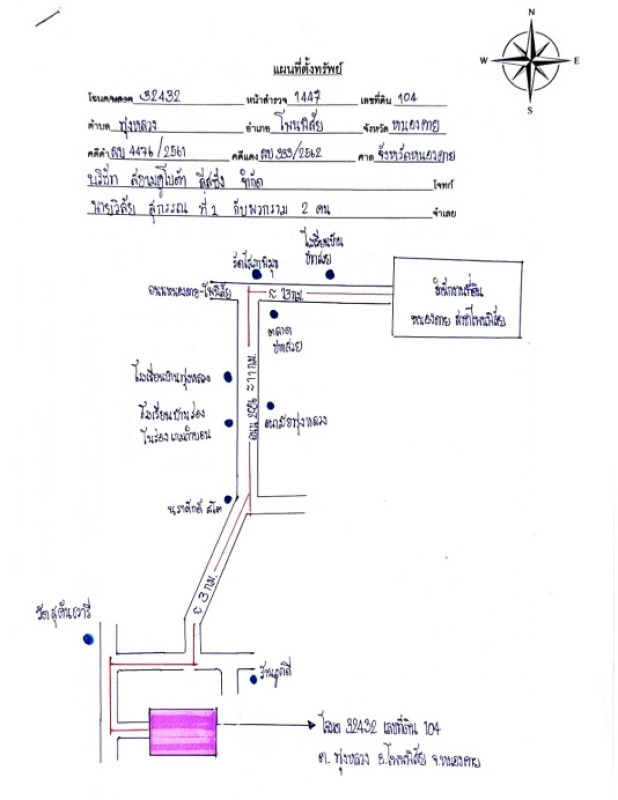 N
W E
S
แผนที่ตั้งทรัพย์
โฉนดเลขที่ 32432 หน้าสำรวจ 1447 เลขที่ดิน 104
ตำบล ทุ่งหลวง อำเภอ โพนพิสัย จังหวัด หนองคาย
คดีดำ ผบ 4476/2561 คดีแดง ผบ 333/2562 ศาล จังหวัดหนองคาย
บริษัท สยามคูโบต้า ลีสซิ่ง จำกัด โจทก์
นายวิสัย ที่ 1 กับพวกรวม 2 คน จำเลย
โรงเรียนบ้าน
ถนนหนองคาย-โพนพิสัย
≈ 13 กม.
สำนักงานที่ดิน
หนองคาย สาขาโพนพิสัย
ตลาด
โรงเรียนบ้านทุ่งหลวง
ถนน ≈ 11 กม.
โรงเรียนบ้าน
อนามัยทุ่งหลวง
≈ 3 กม.
วัด
ร้าน
โฉนด 32432 เลขที่ดิน 104
ต. ทุ่งหลวง อ.โพนพิสัย จ.หนองคาย